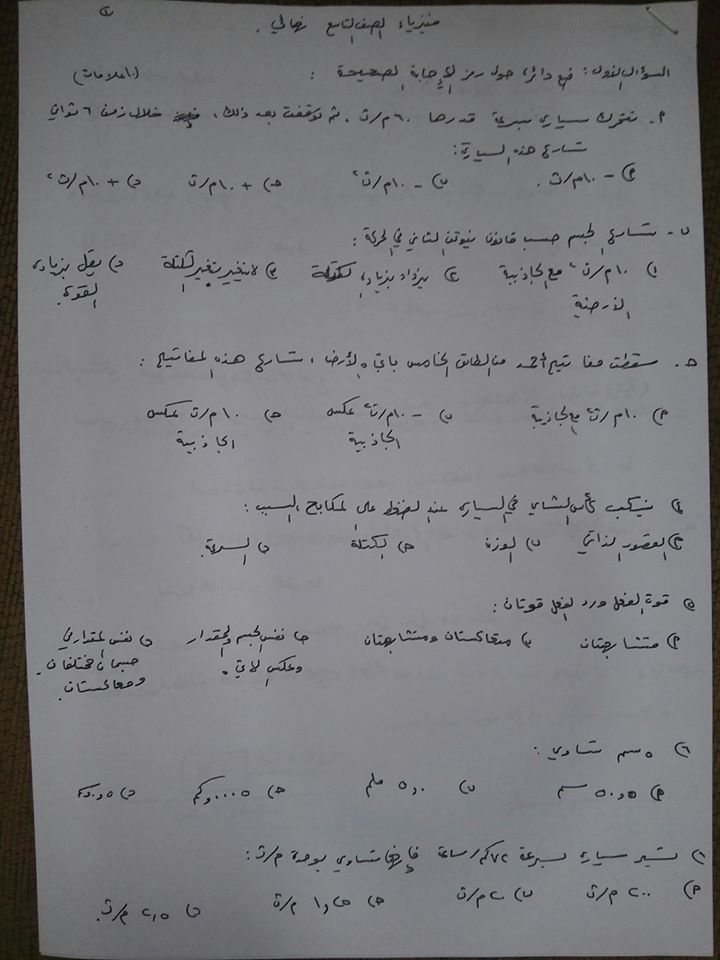 فيزياء الصف التاسع نهائي.
السؤال الأول: ضع دائرة حول رمز الإجابة الصحيحة : (١٠ علامات)
٢- تتحرك سيارة بسرعة قدرها ٦٠ م/ث ، ثم توقفت بعد ذلك ، خلال زمن ٦ ثوان
تسارع هذه السيارة:
أ) - ١٠ م/ث . ب) - ١٠ م/ث٢ ج) + ١٠ م/ث د) + ١٠ م/ث٢
تسارع الجسم حسب قانون نيوتن الثاني في الحركة :
أ) ١٠ م/ث٢ مع الجاذبية يزداد بزيادة الكتلة لا يتغير بتغير الكتلة د) يقل بزيادة
الأرضية القوة.
سقطت مفاتيح أحمد من الطابق الخامس باتجاه الأرض ، تسارع هذه المفاتيح :
أ) ١٠ م/ث٢ مع الجاذبية ب) - ١٠ م/ث٢ عكس ج) ١٠ م/ث عكس
الجاذبية الجاذبية
٤) ينسكب كأس الشاي في السيارة عند الضغط على المكابح السبب :
أ) القصور الذاتي ب) الوزن ج) الكتلة د) السرعة.
٥) قوة الفعل ورد الفعل قوتان :
أ) متشابهتان ب) متعاكستان ومتشابهتان ج) نفس الجسم والمقدار د) نفس المقدار في
وعكس الاتجاه جسمان مختلفان
ومتعاكستان.
٦) ٥ سم تساوي :
أ) ٥و٠ سم ب) ٥٫٠ ملم ج)
تسير سيارة بسرعة ٧٢ كم/ساعة فإنها تساوي بوحدة م/ث :
أ) ٢٠٠ م/ث ب) ٢٠ م/ث ج) م/ث د) ٢٫٥ م/ث.